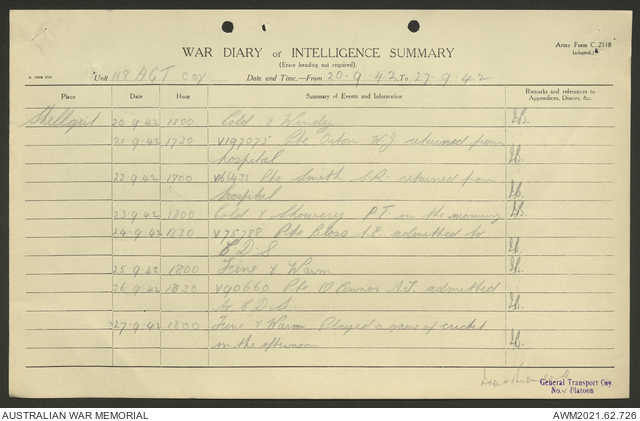 Army Form C. 2118
(adapted)
WAR DIARY or INTELLIGENCE SUMMARY
(Erase heading not required).
Unit 118 AGT Coy Date and Time.—From 20.9.42 To 27.9.42
Place Date Hour Summary of Events and Information Remarks and references to Appendices, Diaries, &c.
20.9.42 1800 Cold & Windy
21.9.42 1730 V197075 Pte Orton W.J returned from
hospital
22.9.42 1800 Pte Smith returned from
hospital
23.9.42 1800 Cold & Showery PT in the morning
24.9.42 1830 V75788 Pte A.E admitted to
C.D.S
25.9.42 1800 Fine & Warm
26.9.42 1830 V90660 Pte O'Connor A.J. admitted
to C.D.S.
27.9.42 1800 Fine & Warm Played a game of cricket
in the afternoon
General Transport Coy.
No. Platoon
AUSTRALIAN WAR MEMORIAL AWM2021.62.726